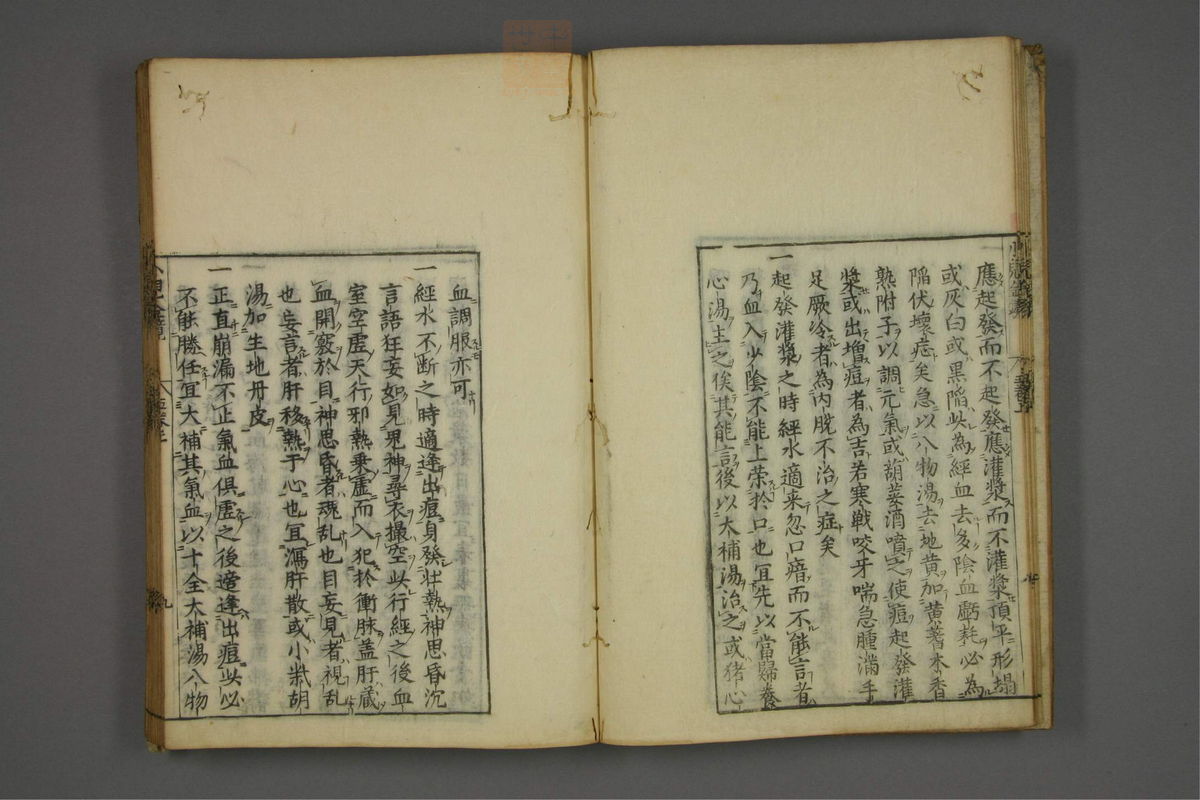 應起發而不起發應灌漿而不灌漿頂平形塌
或灰白或黒陷此為經血去多陰血虧耗必為
陷伏壞痘矣急以八物湯去地黄加黄芪木香
熟附子以調元氣或胡荽酒噴之使痘起發灌
漿或出増痘者為吉若寒戦咬牙喘急腫滿手
足厥冷者為内脱不治之症矣
一起發灌漿之時經水適来忽口瘖而不能言者
乃血入少陰不能上荣於口也宜先以當歸養
心湯主之俟其能言後以大補湯治之或猪心
血調服亦可
一經水不断之時適逢出痘身發壮熱神思昏沉
言語狂妄如見鬼神尋衣撮空此行經之後血
室空虚天行邪熱乗虚而入犯於衝脉盖肝藏
血開竅於目神思昏者魂乱也目妄見者視乱
也妄言者肝移熱于心也宜瀉肝散或小柴胡
湯加生地丹皮
一正直崩漏不正氣血俱虚之後適逢出痘此必
不能勝任宜大補其氣血以十全大補湯八物